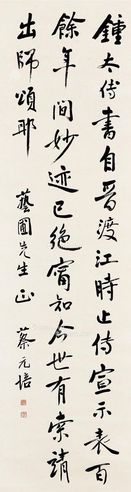 鍾太傅書自晉渡江時止傳宣示表百
餘年間妙迹已絕甯知今世有索靖
出師頌耶
藝圃先生正 蔡元培